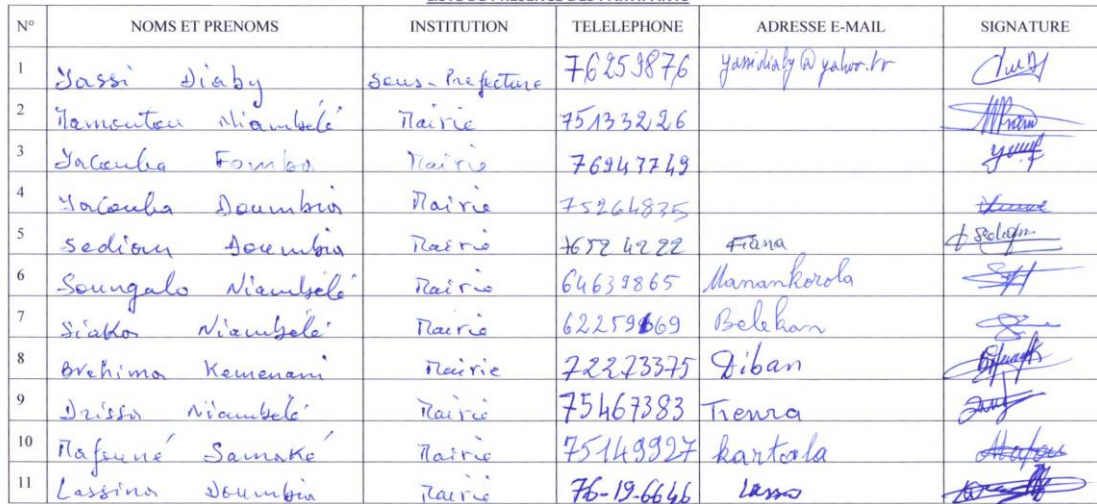 LISTE DE PRESENCE DES PARTICIPANTS
N° NOMS ET PRENOMS INSTITUTION TELELEPHONE ADRESSE E-MAIL SIGNATURE
1 Yassi Diaby Sous-Prefecture 76259876 yassidiaby@yahoo.fr
2 Mamoutou Niambélé Mairie 75133226
3 Yacouba Fomba Mairie 76943749
4 Yacouba Doumbia Mairie 75264835
5 Sediou Doumbia Mairie 76524222 Fiana
6 Soungalo Niambélé Mairie 64639865 Manankorola
7 Siaka Niambélé Mairie 62259669 Belekan
8 Brehima Kemenani Mairie 72273375 Diban
9 Drissa Niambélé Mairie 75467383 Tienra
10 Mafouné Samaké Mairie 75149927 kartola
11 Lassina Doumbia Mairie 76-19-6646 Lasso